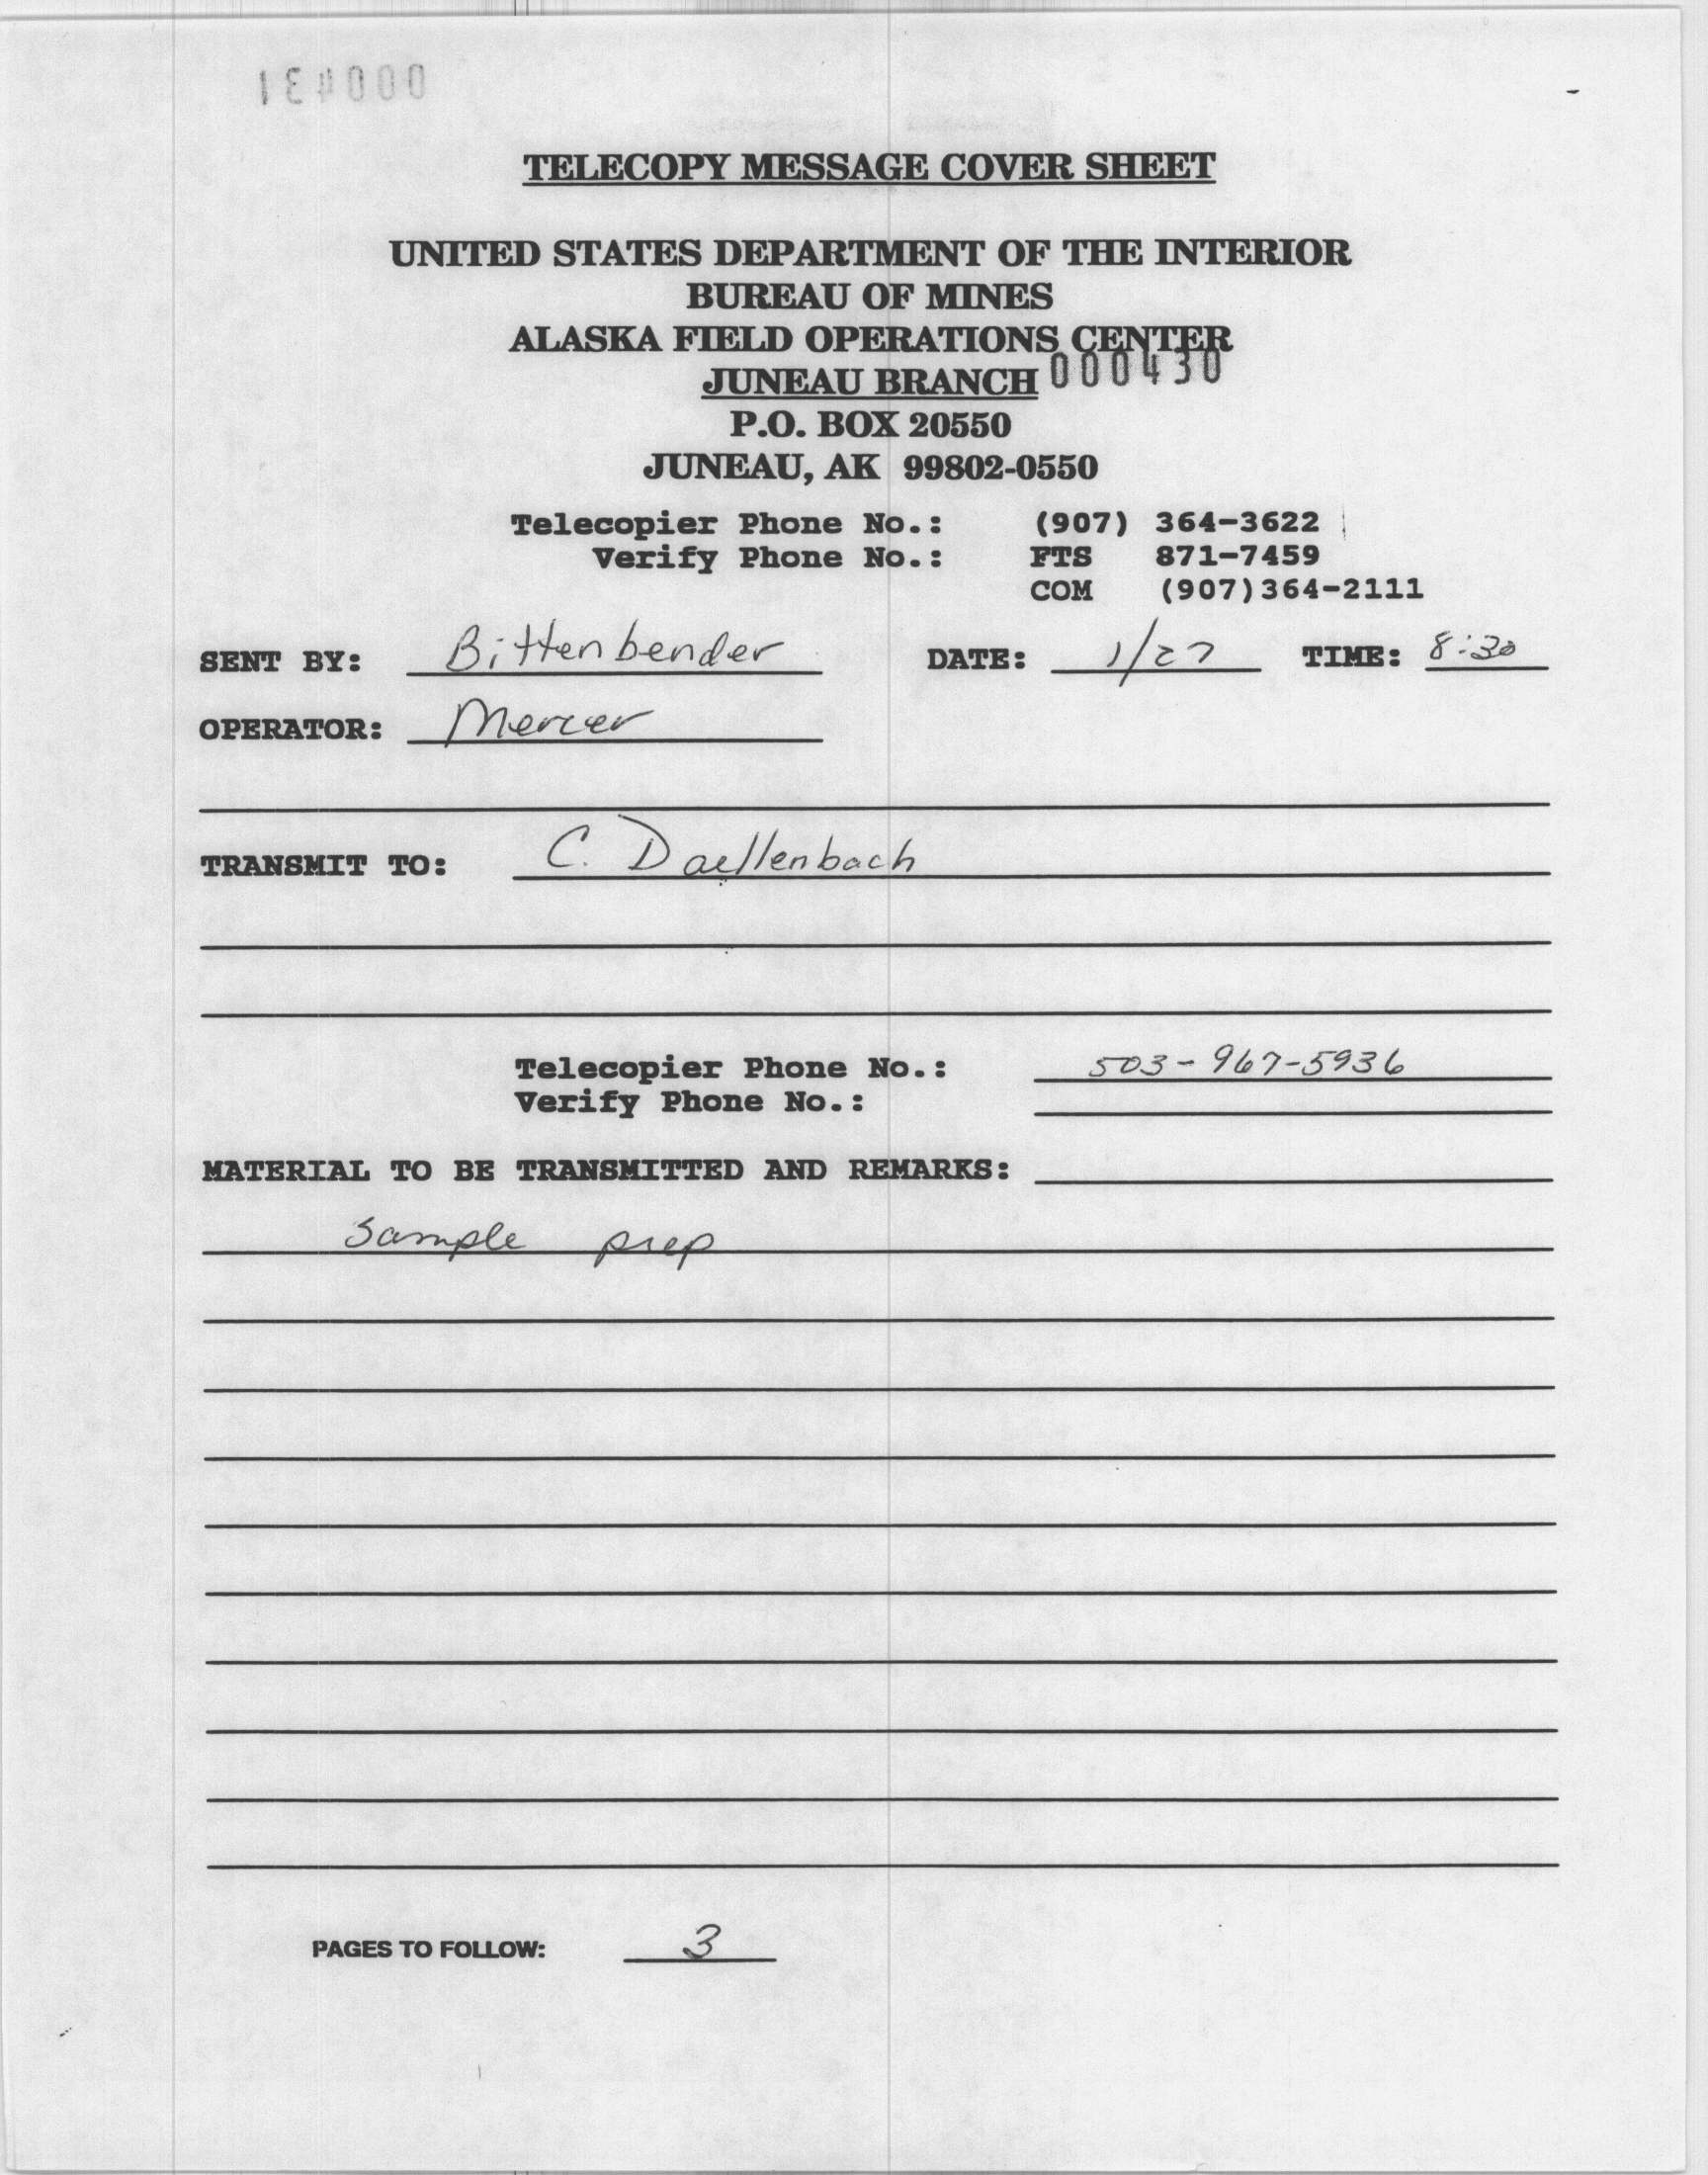 000431
TELECOPY MESSAGE COVER SHEET
UNITED STATES DEPARTMENT OF THE INTERIOR
BUREAU OF MINES
ALASKA FIELD OPERATIONS CENTER
JUNEAU BRANCH 000430
P.O. BOX 20550
JUNEAU, AK 99802-0550
Telecopier Phone No.: (907) 364-3622
Verify Phone No.: FTS 871-7459
COM (907)364-2111
SENT BY: Bittenbender DATE: 1/27 TIME: 8:30
OPERATOR: Mercer
TRANSMIT TO: C. Daellenbach
Telecopier Phone No.: 503-967-5936
Verify Phone No.:
MATERIAL TO BE TRANSMITTED AND REMARKS:
Sample prep
PAGES TO FOLLOW: 3